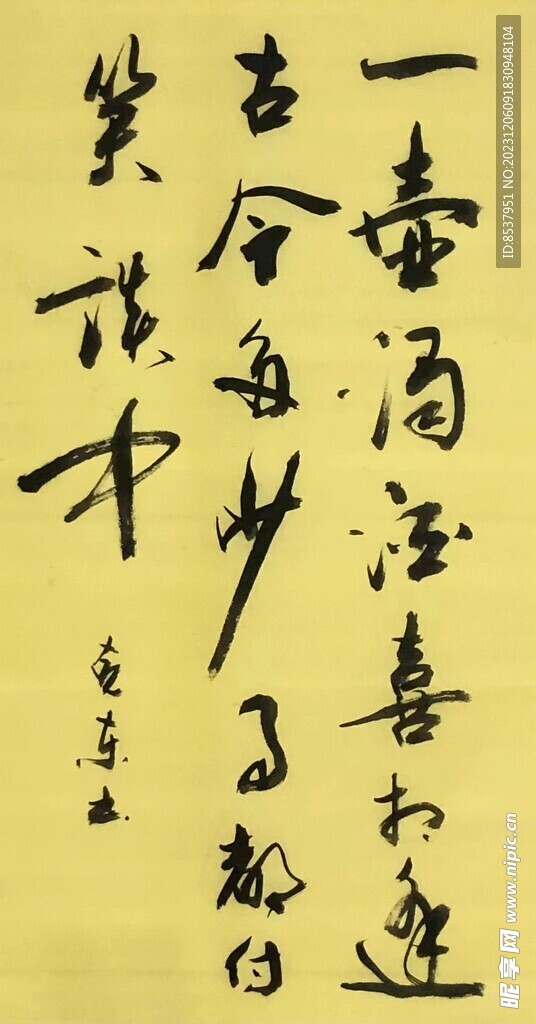 一壺濁酒喜相逢
古今多少事都付
笑談中
克东书
ID:8537951 NO:20231206091830948104
昵享网 www.nipic.cn